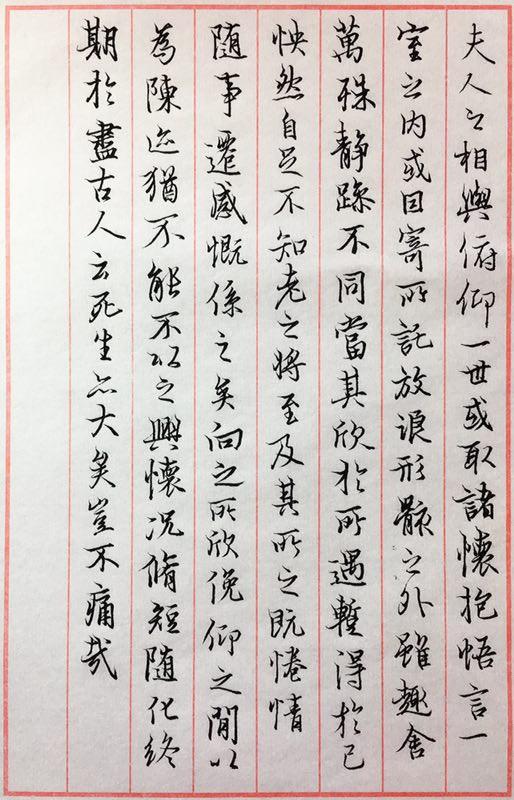 夫人之相與俯仰一世或取諸懷抱悟言一
室之内或因寄所託放浪形骸之外雖趣舍
萬殊静躁不同當其欣於所遇暫得於己
怏然自足不知老之將至及其所之既惓情
随事遷感慨係之矣向之所欣俛仰之閒以
為陳迹猶不能不以之興懷况脩短随化終
期於盡古人云死生亦大矣豈不痛哉